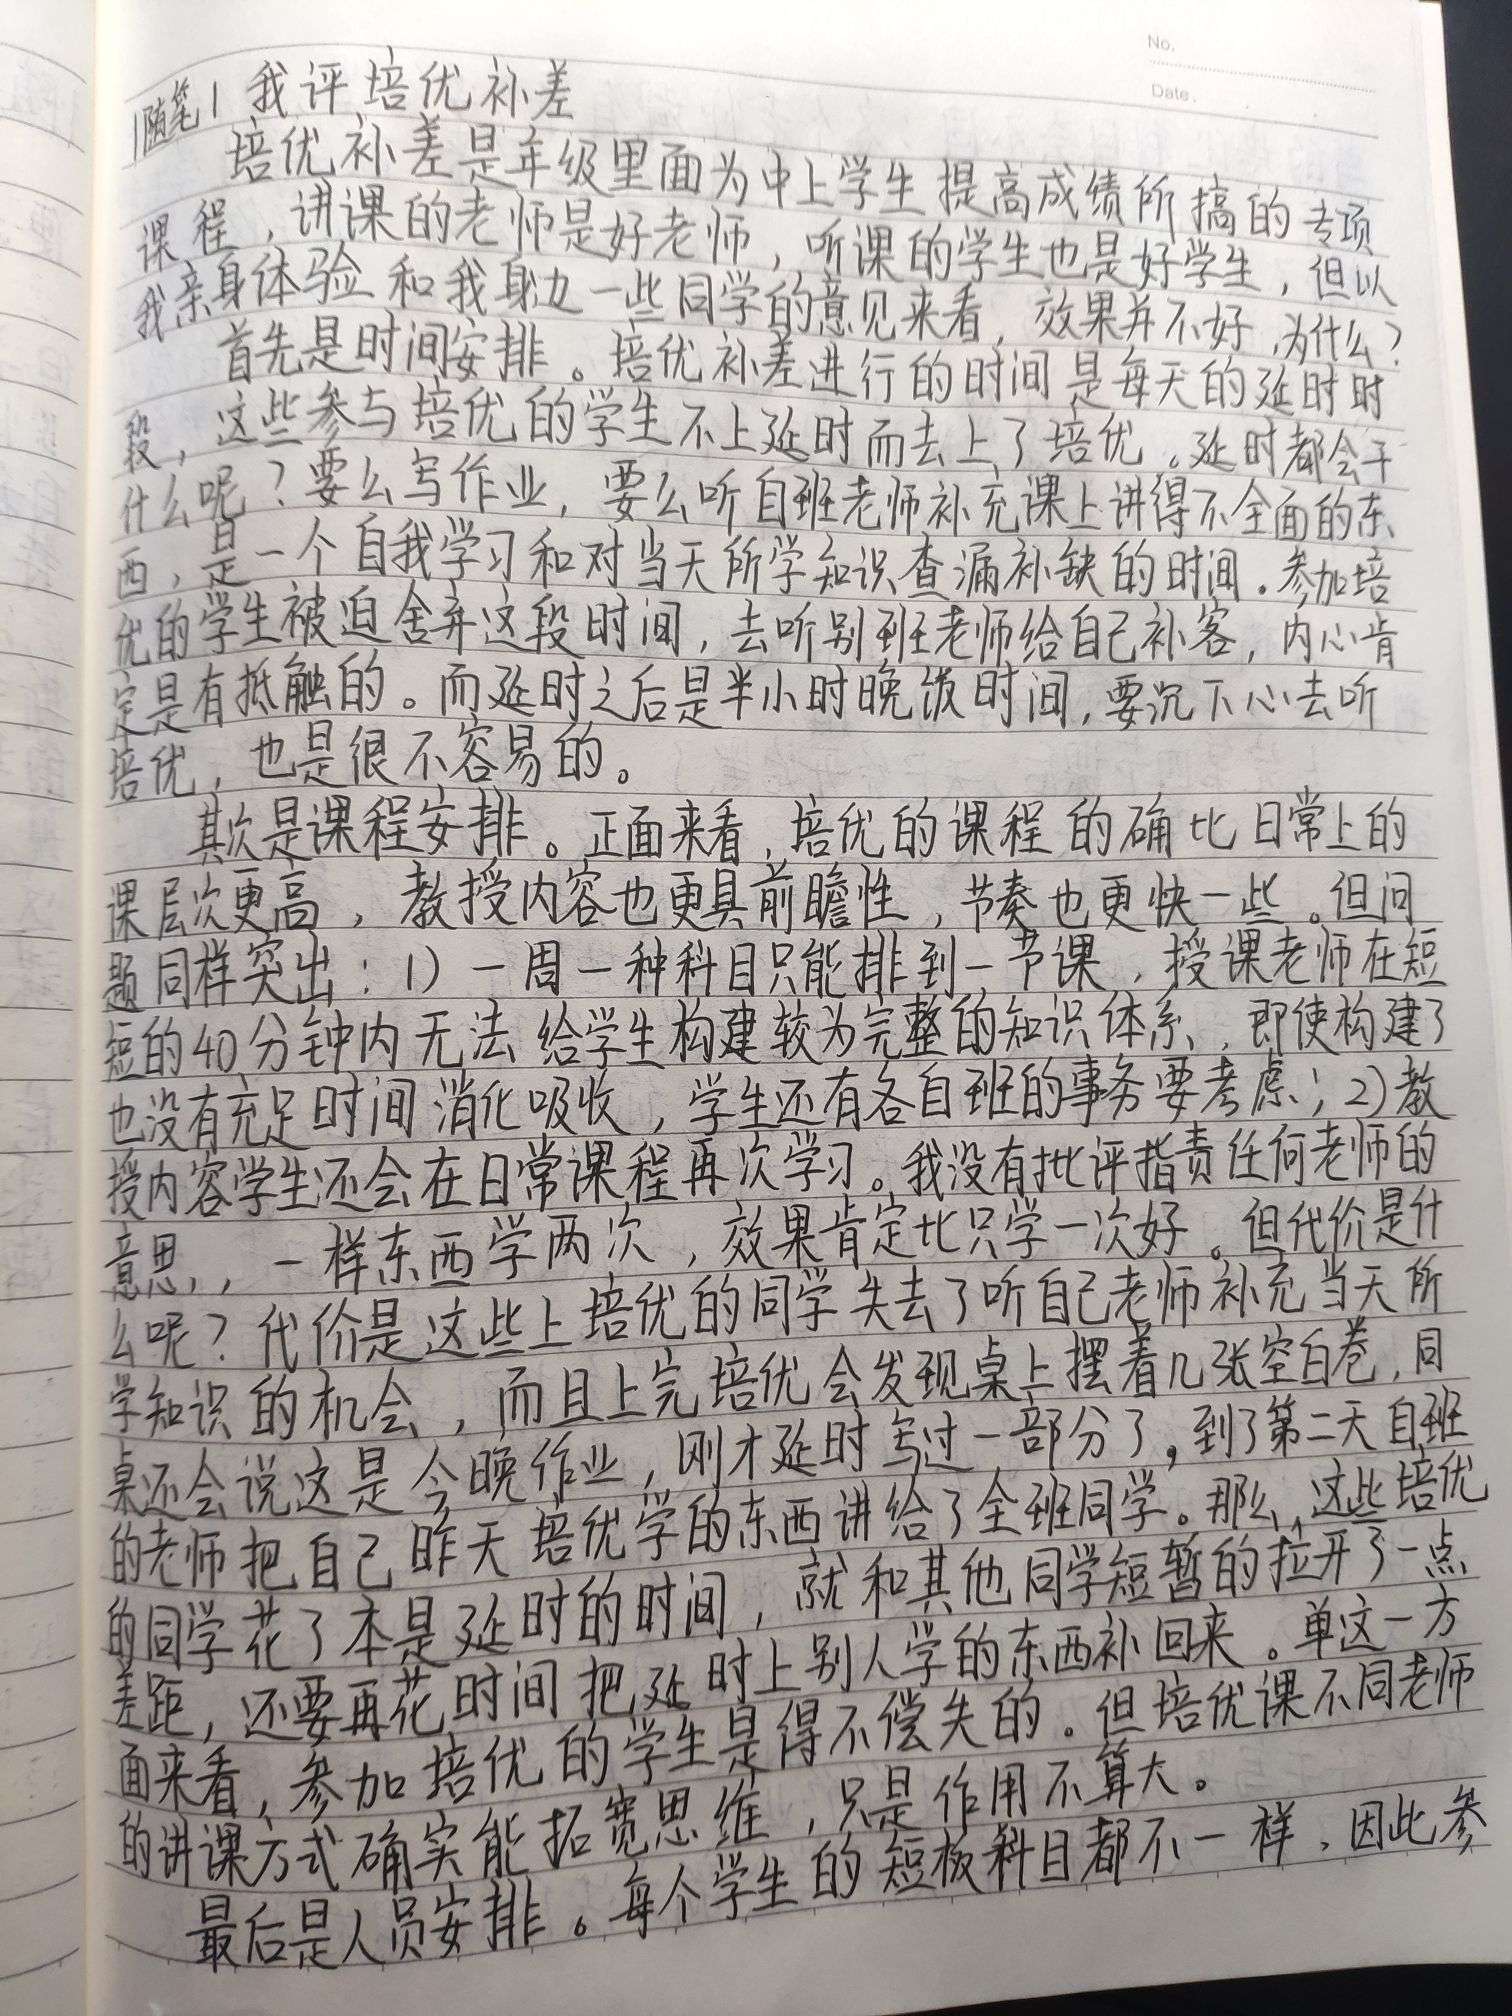 No.
Date.
|随笔| 我评培优补差
培优补差是年级里面为中上学生提高成绩所搞的专项
课程，讲课的老师是好老师，听课的学生也是好学生，但以
我亲身体验和我身边一些同学的意见来看，效果并不好，为什么？
首先是时间安排。培优补差进行的时间是每天的延时时
段，这些参与培优的学生不上延时而去上了培优。延时都会干
什么呢？要么写作业，要么听自班老师补充课上讲得不全面的东
西，是一个自我学习和对当天所学知识查漏补缺的时间。参加培
优的学生被迫舍弃这段时间，去听别班老师给自己补客，内心肯
定是有抵触的。而延时之后是半小时晚饭时间，要沉下心去听
培优，也是很不容易的。
其次是课程安排。正面来看，培优的课程的确比日常上的
课层次更高，教授内容也更具前瞻性，节奏也更快一些。但问
题同样突出：1）一周一种科目只能排到一节课，授课老师在短
短的40分钟内无法给学生构建较为完整的知识体系，即使构建了
也没有充足时间消化吸收，学生还有各自班的事务要考虑；2）教
授内容学生还会在日常课程再次学习。我没有批评指责任何老师的
意思，，一样东西学两次，效果肯定比只学一次好。但代价是什
么呢？代价是这些上培优的同学失去了听自己老师补充当天所
学知识的机会，而且上完培优会发现桌上摆着几张空白卷，同
桌还会说这是今晚作业，刚才延时写过一部分了。到了第二天自班
的老师把自己昨天培优学的东西讲给了全班同学。那么，这些培优
的同学花了本是延时的时间，就和其他同学短暂的拉开了一点
差距，还要再花时间把延时上别人学的东西补回来。单这一方
面来看，参加培优的学生是得不偿失的。但培优课不同老师
的讲课方式确实能拓宽思维，只是作用不算大。
最后是人员安排。每个学生的短板科目都不一样，因此参